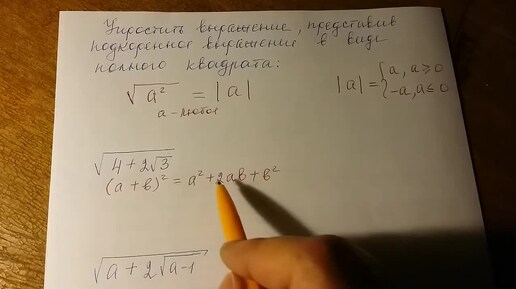 Упростить выражение, представив
подкоренное выражение в виде
полного квадрата:
√a² = |a|
a - любое
|a| = {a, a ≥ 0
-a, a ≤ 0
√4 + 2√3
(a + b)² = a² + 2ab + b²
√a + 2√a-1